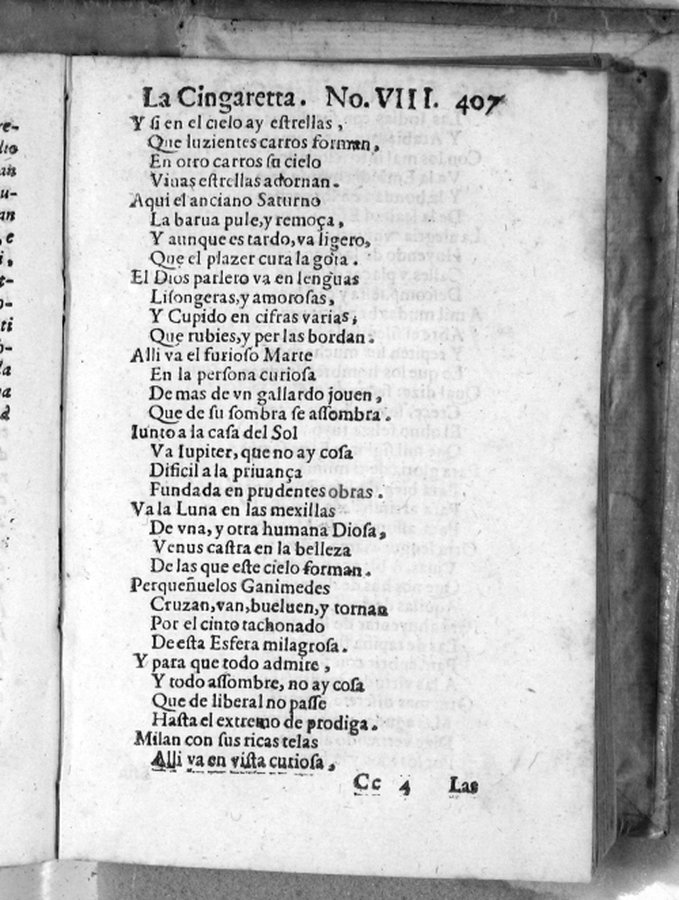 La Cingaretta. No. VIII. 407
Y si en el cielo ay estrellas,
Que luzientes carros forman,
En otro carros su cielo
Viuas estrellas adornan.
Aqui el anciano Saturno
La barua pule, y remoça,
Y aunque es tardo, va ligero,
Que el plazer cura la gota.
El Dios parlero va en lenguas
Lisongeras, y amorosas,
Y Cupido en cifras varias,
Que rubies, y perlas bordan.
Alli va el furioso Marte
En la persona curiosa
De mas de vn gallardo jouen,
Que de su sombra se assombra.
Iunto a la casa del Sol
Va Iupiter, que no ay cosa
Dificil a la priuança
Fundada en prudentes obras.
Va la Luna en las mexillas
De vna, y otra humana Diosa,
Venus castra en la belleza
De las que este cielo forman.
Perqueñuelos Ganimedes
Cruzan, van, bueluen, y tornan
Por el cinto tachonado
De esta Esfera milagrosa.
Y para que todo admire,
Y todo assombre, no ay cosa
Que de liberal no passe
Hasta el extremo de prodiga.
Milan con sus ricas telas
Alli va en vista curiosa,
Cc 4 Las
re-
an
u-
an
, e
i,
t-
o-
ti
b-
la
va